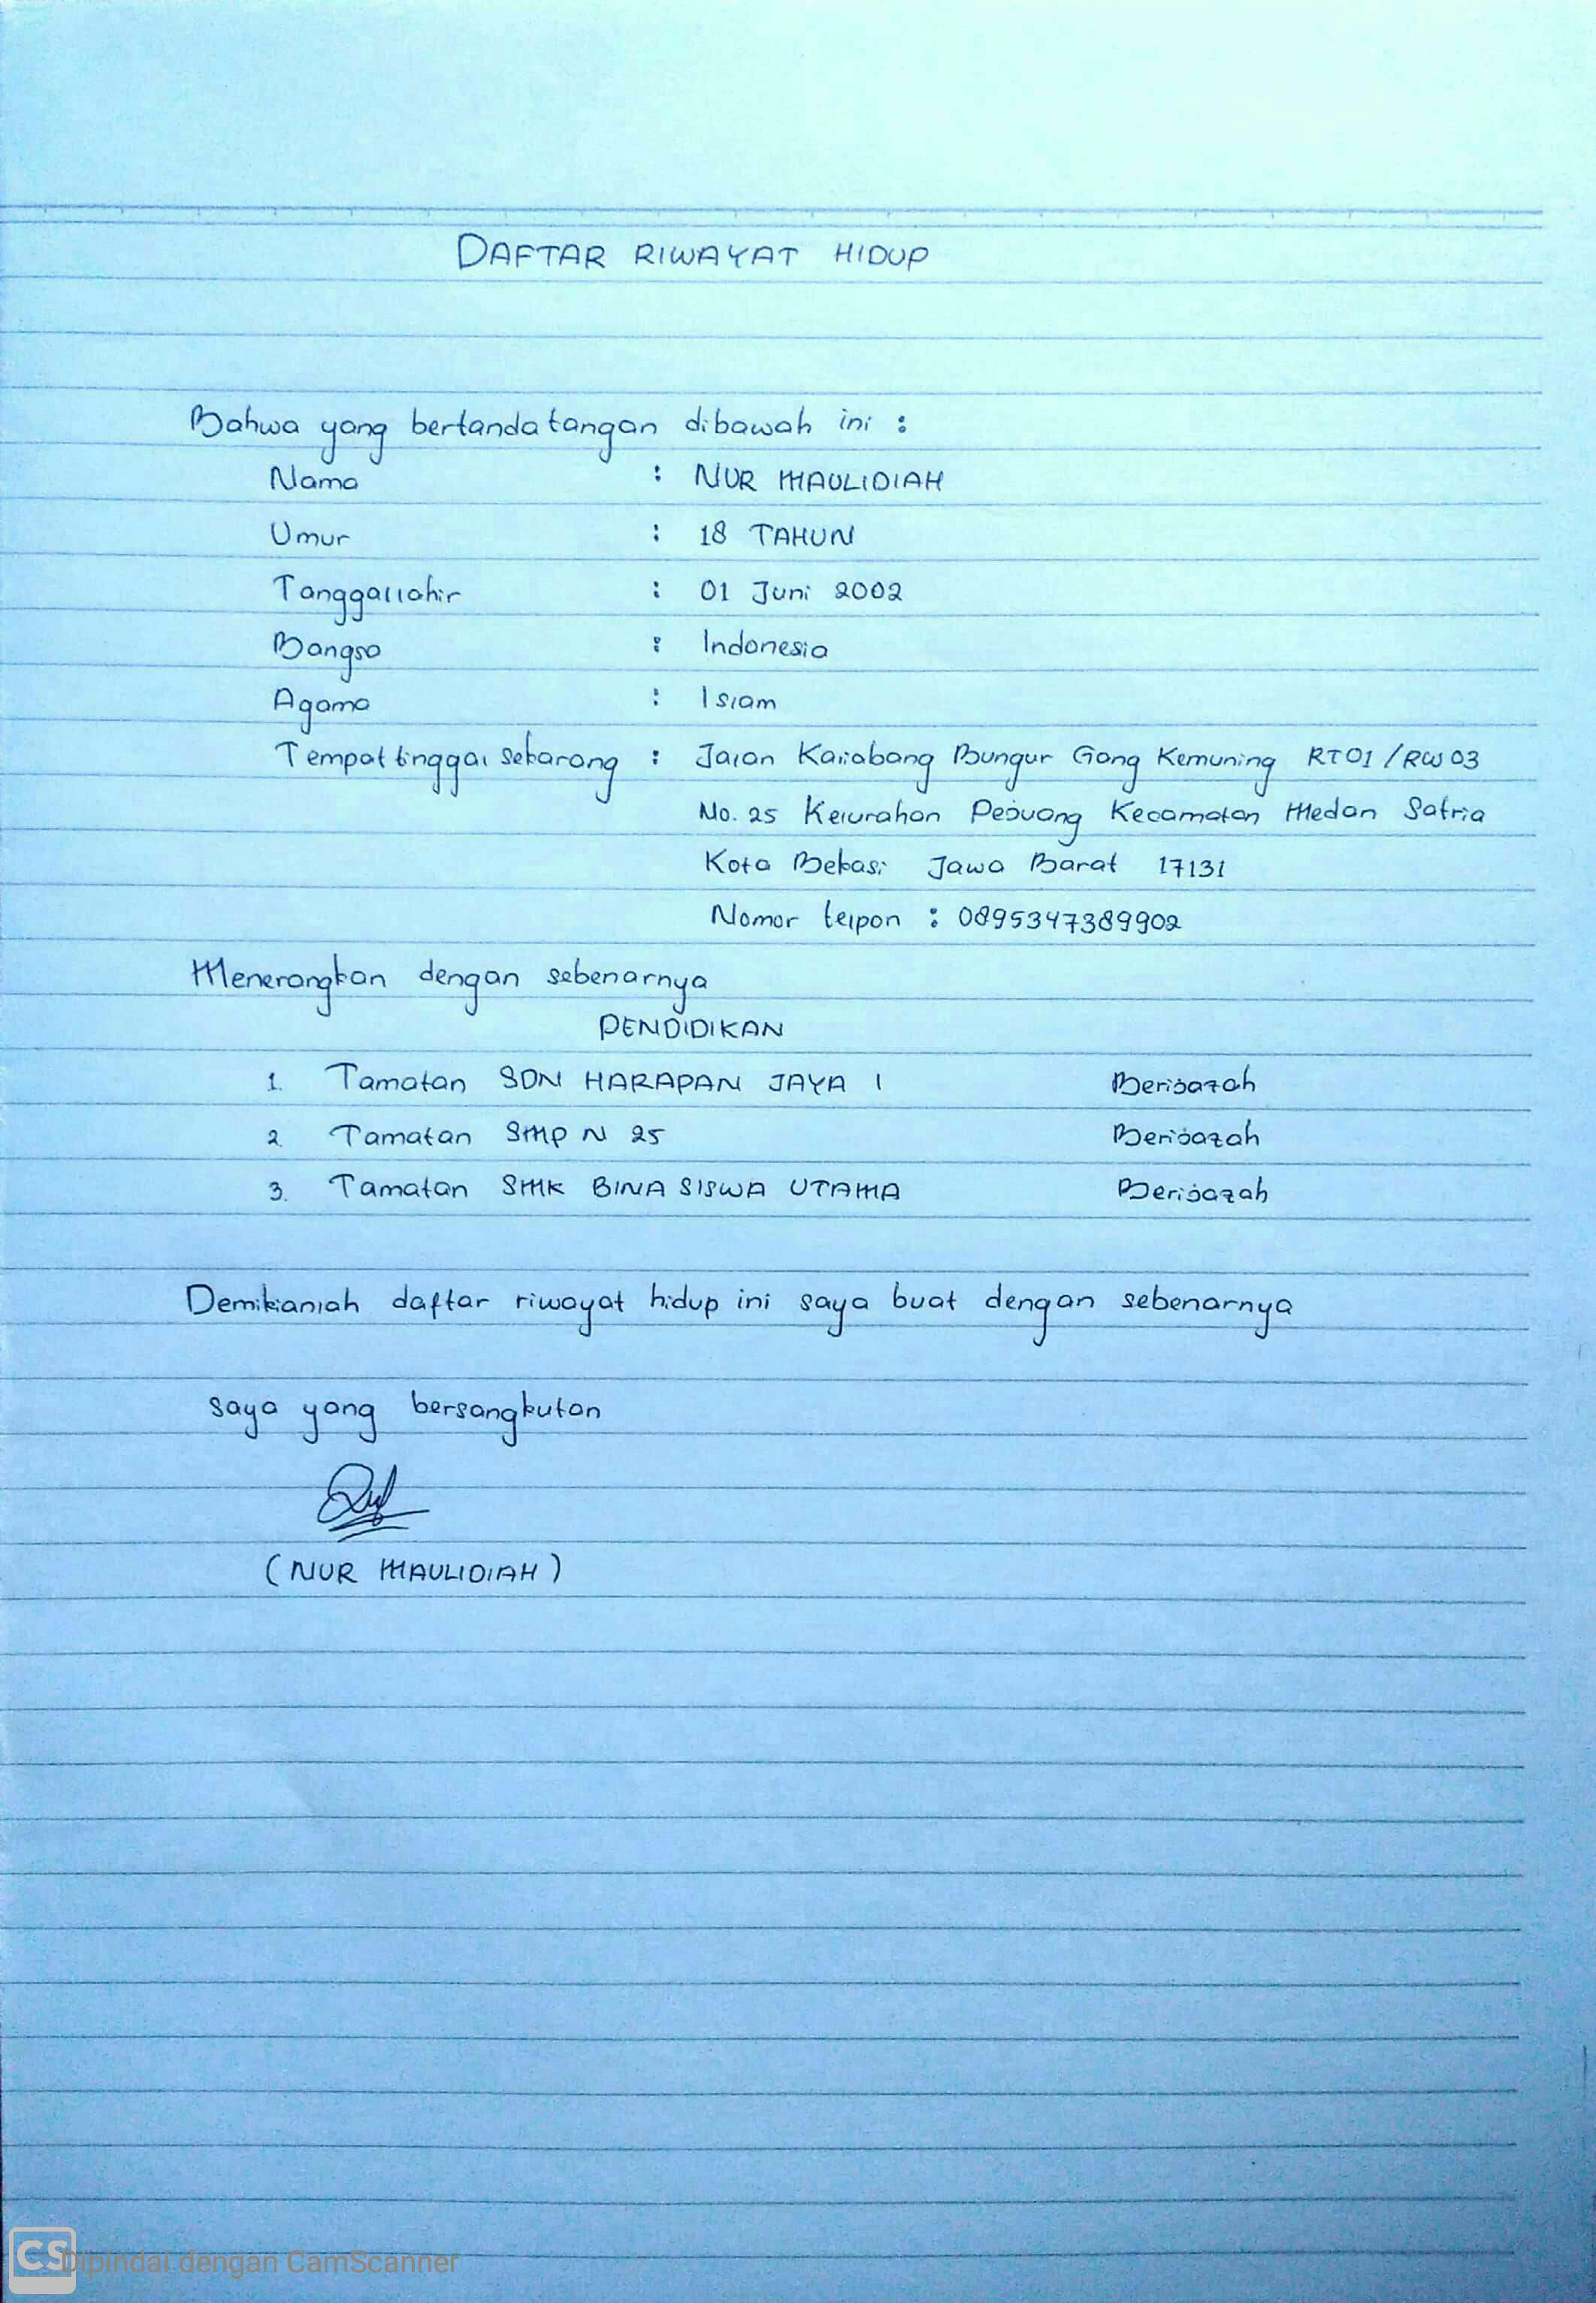 DAFTAR RIWAYAT HIDUP
Bahwa yang bertanda tangan dibawah ini :
Nama : NUR MAULIDIAH
Umur : 18 TAHUN
Tanggal lahir : 01 Juni 2002
Bangsa : Indonesia
Agama : Islam
Tempat tinggal sekarang : Jalan Kaliabang Bungur Gang Kemuning RT01/RW03
No. 25 Kelurahan Pejuang Kecamatan Medan Satria
Kota Bekasi Jawa Barat 17131
Nomor telpon : 0895347389902
Menerangkan dengan sebenarnya
PENDIDIKAN
1. Tamatan SDN HARAPAN JAYA 1 Berijazah
2. Tamatan SMP N 25 Berijazah
3. Tamatan SMK BINA SISWA UTAMA Berijazah
Demikianlah daftar riwayat hidup ini saya buat dengan sebenarnya
saya yang bersangkutan
(NUR MAULIDIAH)
CS Dipindai dengan CamScanner